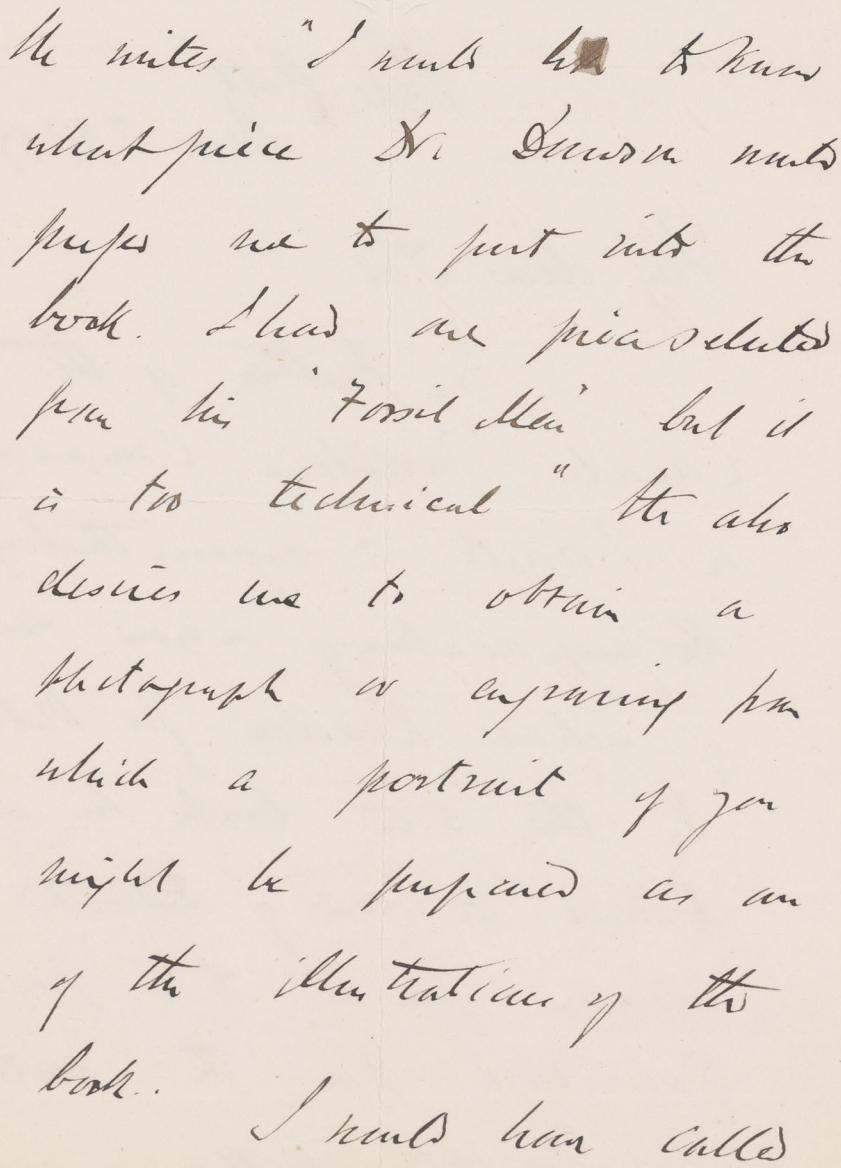 He writes "I would like to know
what piece Dr. Dawson would
prefer me to put into the
book. I had one piece selected
from his "Fossil Men" but it
is too technical" He also
desires me to obtain a
photograph or engraving from
which a portrait of you
might be prepared as one
of the illustrations of the
book.
I would have called